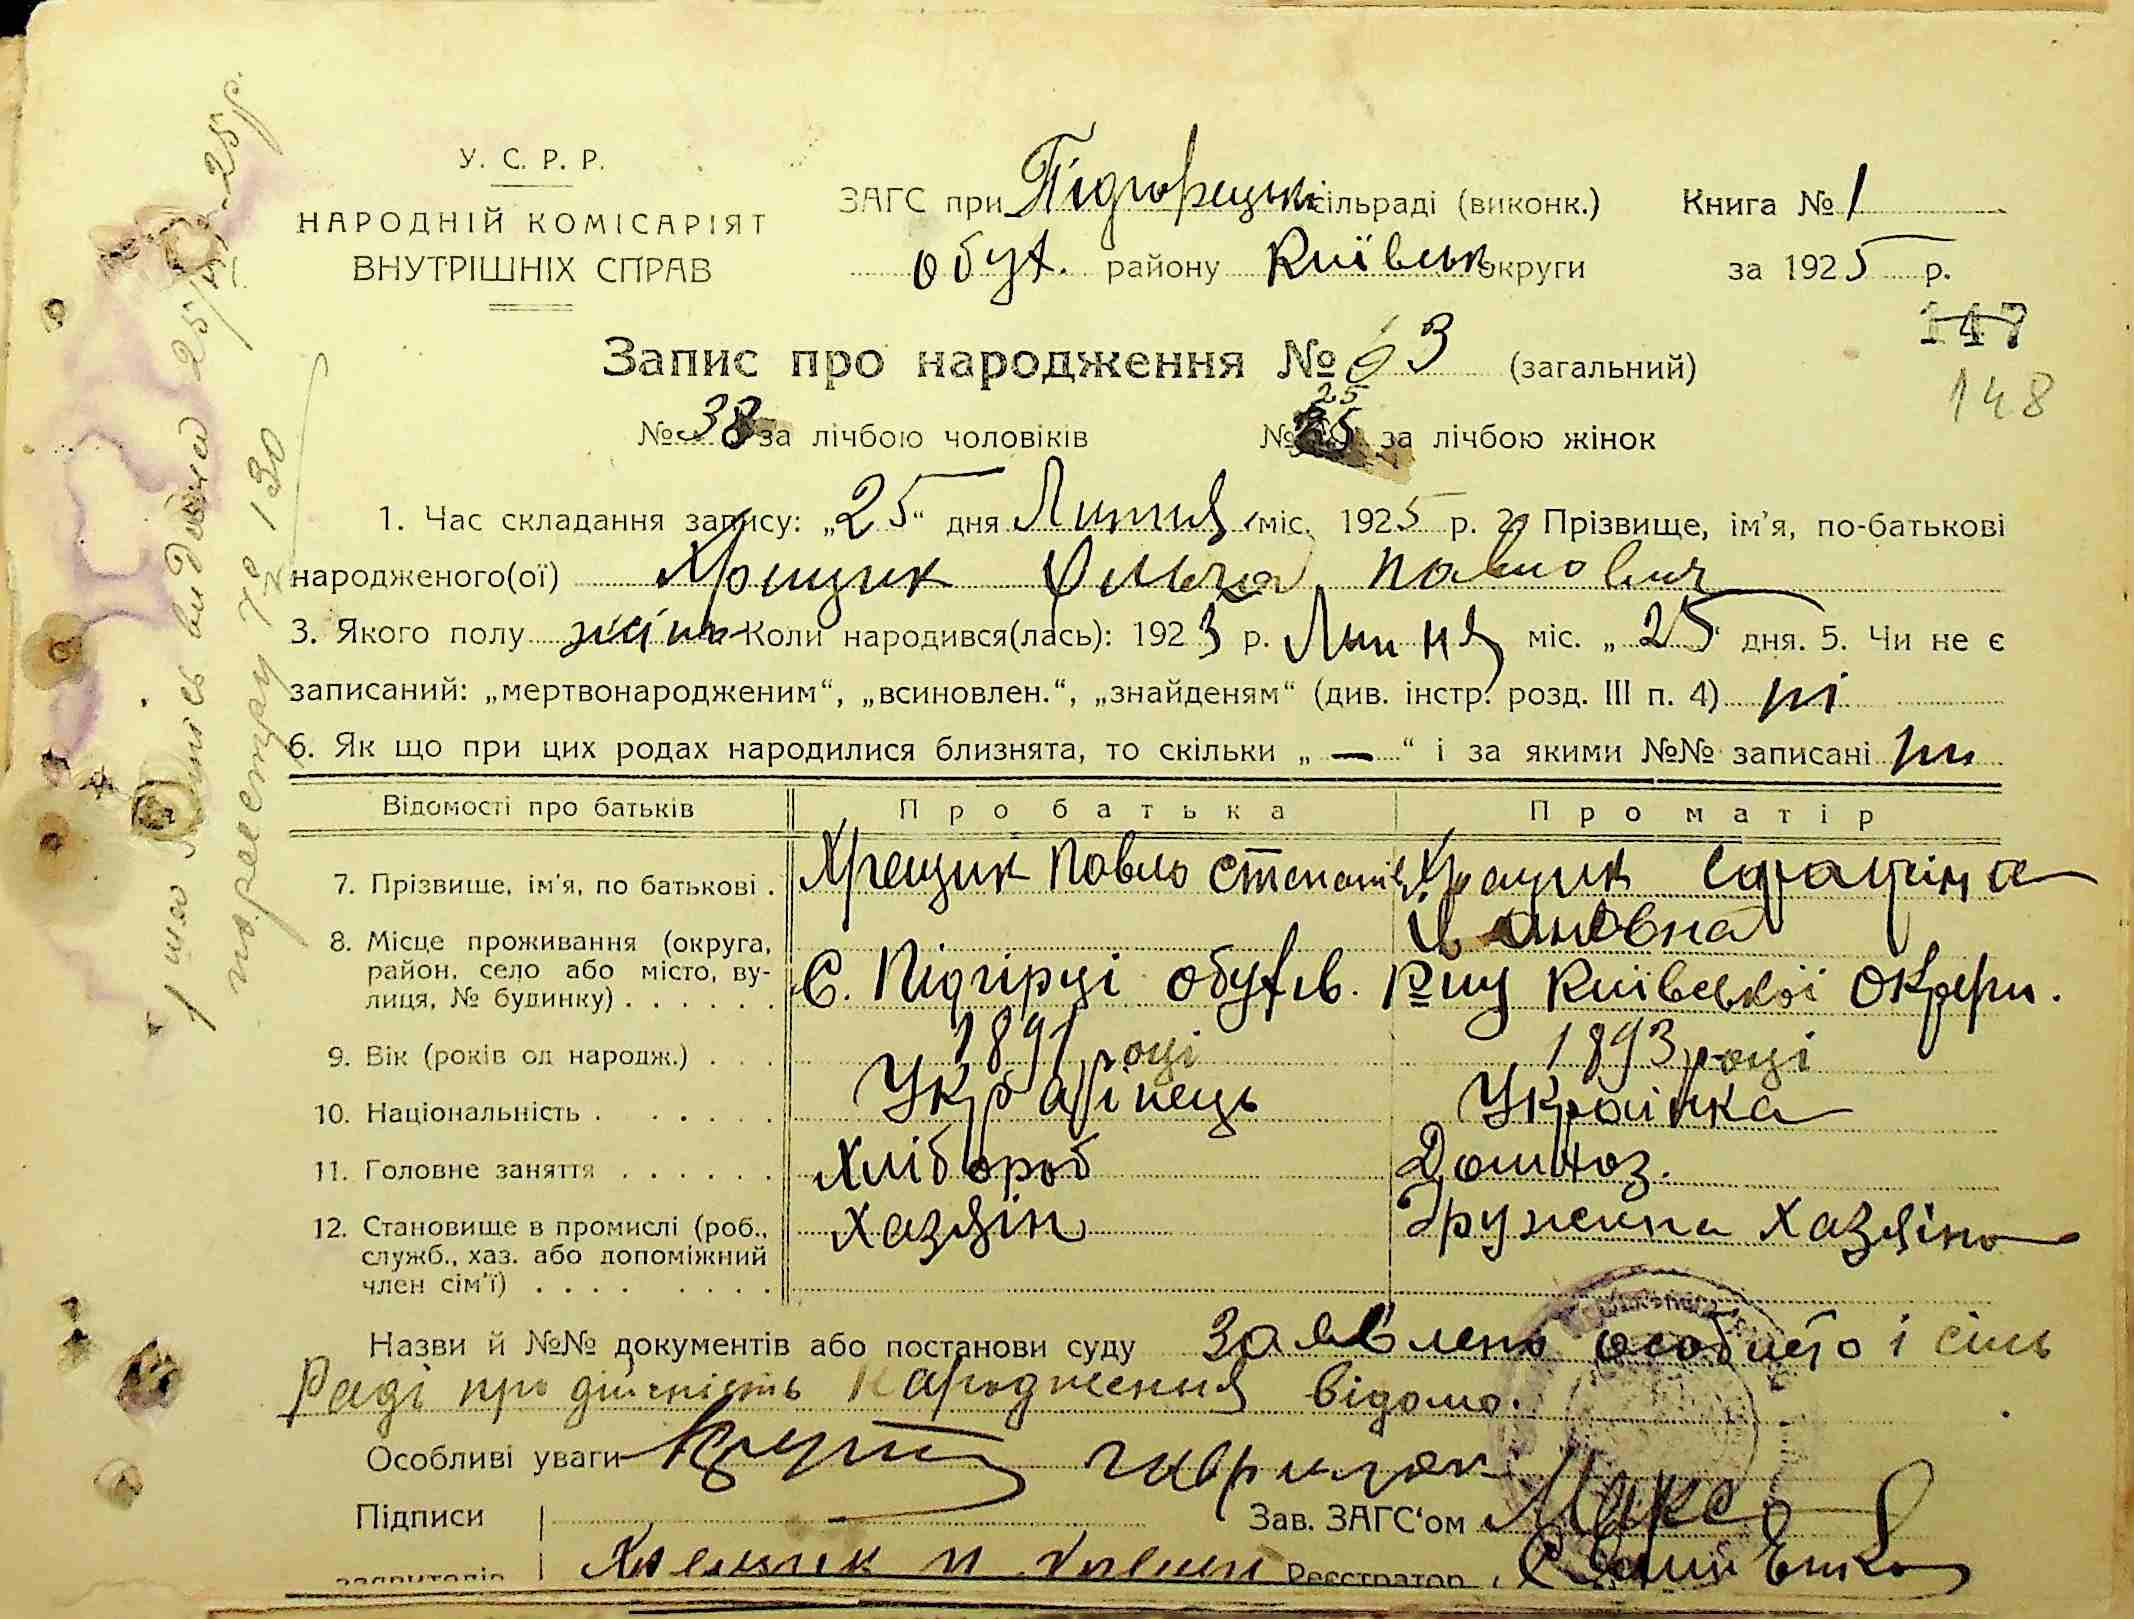 У. С. Р. Р.
НАРОДНІЙ КОМІСАРІЯТ
ВНУТРІШНІХ СПРАВ
ЗАГС при Підгорецькі сільраді (виконк.) Книга № 1
обух. району Київськ округи за 1925 р.
147
148
Запис про народження № 63 (загальний)
№ 38 за лічбою чоловіків № 25 за лічбою жінок
25
1. Час складання запису: „25“ дня Липня міс. 1925 р. 2. Прізвище, ім'я, по-батькові
народженого(ої) Хрещик Ольга Павлович
3. Якого полу жіноч Коли народився(лась): 1923 р. Липня міс. „25“ дня. 5. Чи не є
записаний: „мертвонародженим“, „всиновлен.“, „знайденям“ (див. інстр. розд. III п. 4) ні
6. Як що при цих родах народилися близнята, то скільки „—“ і за якими №№ записані ні
Відомості про батьків Про батька Про матір
7. Прізвище, ім'я, по батькові . Хрещик Павло Степанів Хрещик
8. Місце проживання (округа, район, село або місто, вулиця, № будинку) . . . . . . С. Підгірці обухів. р-ну Київської Округи.
9. Вік (років од народж.) . . . 1891 році 1893 році
10. Національність . . . . . . Українець Українка
11. Головне заняття . . . . . . Хлібороб Домхоз.
12. Становище в промислі (роб., служб., хаз. або допоміжний член сім'ї) . . . . . . . . Хазяїн Дружина хазяїна
Назви й №№ документів або постанови суду Заявлено особисто і сіль
Раді про дійсність народження відомо.
Особливі уваги
Підписи Зав. ЗАГС'ом
Хрещик п Реєстратор
1 ша видана 25/VII-25 р.
по реєстру № 130